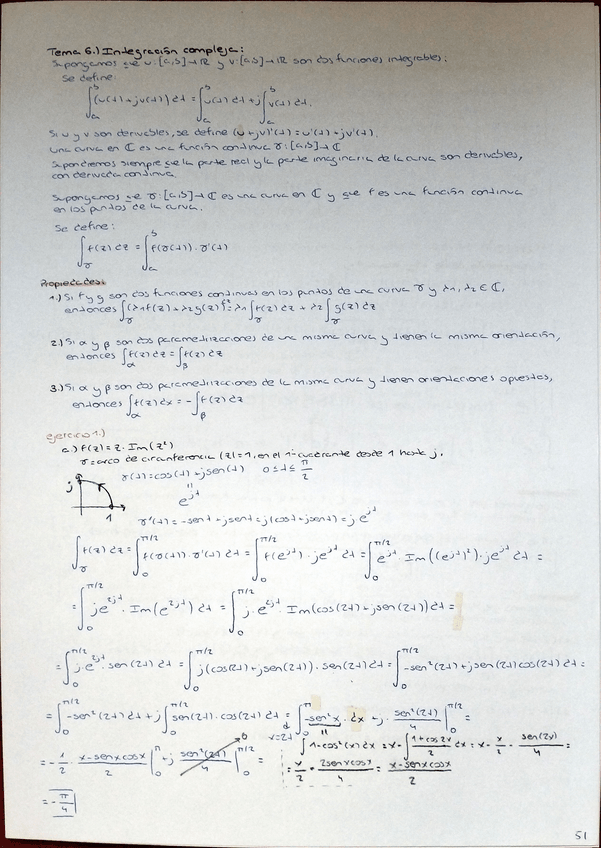 Tema 6.) Integración compleja:
Supongamos que u:[a,b]→ℝ y v:[a,b]→ℝ son dos funciones integrables.
Se define:
∫_a^b (u(t)+jv(t)) dt = ∫_a^b u(t) dt + j∫_a^b v(t) dt.
Si u y v son derivables, se define (u+jv)'(t)=u'(t)+jv'(t).
Una curva en ℂ es una función continua γ:[a,b]→ℂ
Supondremos siempre que la parte real y la parte imaginaria de la curva son derivables,
con derivada continua.
Supongamos que γ:[a,b]→ℂ es una curva en ℂ y que f es una función continua
en los puntos de la curva.
Se define:
∫_γ f(z) dz = ∫_a^b f(γ(t))·γ'(t)
Propiedades:
1.) Si f y g son dos funciones continuas en los puntos de una curva γ y λ1, λ2 ∈ ℂ,
entonces ∫_γ (λ1f(z)+λ2g(z)) = λ1∫_γ f(z) dz + λ2∫_γ g(z) dz
2.) Si α y β son dos parametrizaciones de una misma curva y tienen la misma orientación,
entonces ∫_α f(z) dz = ∫_β f(z) dz
3.) Si α y β son dos parametrizaciones de la misma curva y tienen orientaciones opuestas,
entonces ∫_α f(z) dx = -∫_β f(z) dz
ejercicio 1.)
a.) f(z)=z·Im(z²)
γ=arco de circunferencia |z|=1, en el 1er cuadrante desde 1 hasta j.
γ(t)=cos(t)+jsen(t) 0≤t≤π/2
=
e^{jt}
j
1
γ'(t)=-sent+jcost=j(cost+jsent)=j e^{jt}
∫_γ f(z) dz = ∫_0^{π/2} f(γ(t))·γ'(t) dt = ∫_0^{π/2} f(e^{jt})·je^{jt} dt = ∫_0^{π/2} e^{jt}·Im((e^{jt})²)·je^{jt} dt =
= ∫_0^{π/2} je^{2jt}·Im(e^{2jt}) dt = ∫_0^{π/2} j·e^{2jt}·Im(cos(2t)+jsen(2t)) dt =
= ∫_0^{π/2} j·e^{2jt}·sen(2t) dt = ∫_0^{π/2} j(cos(2t)+jsen(2t))·sen(2t) dt = ∫_0^{π/2} -sen²(2t)+jsen(2t)cos(2t) dt =
= ∫_0^{π/2} -sen²(2t) dt + j∫_0^{π/2} sen(2t)·cos(2t) dt = ∫_0^π -sen²x·dx + j·sen²(2t)/4 |_0^{π/2} =
x=2t
∫ 1-cos²(x) dx = x-∫ (1+cos2x)/2 dx = x - x/2 - sen(2x)/4 =
= -1/2 · (x-senxcosx)/2 |_0^π + j sen²(2t)/4 |_0^{π/2} =
0
= x/2 - 2senxcosx/4 = (x-senxcosx)/2
= -π/4
51